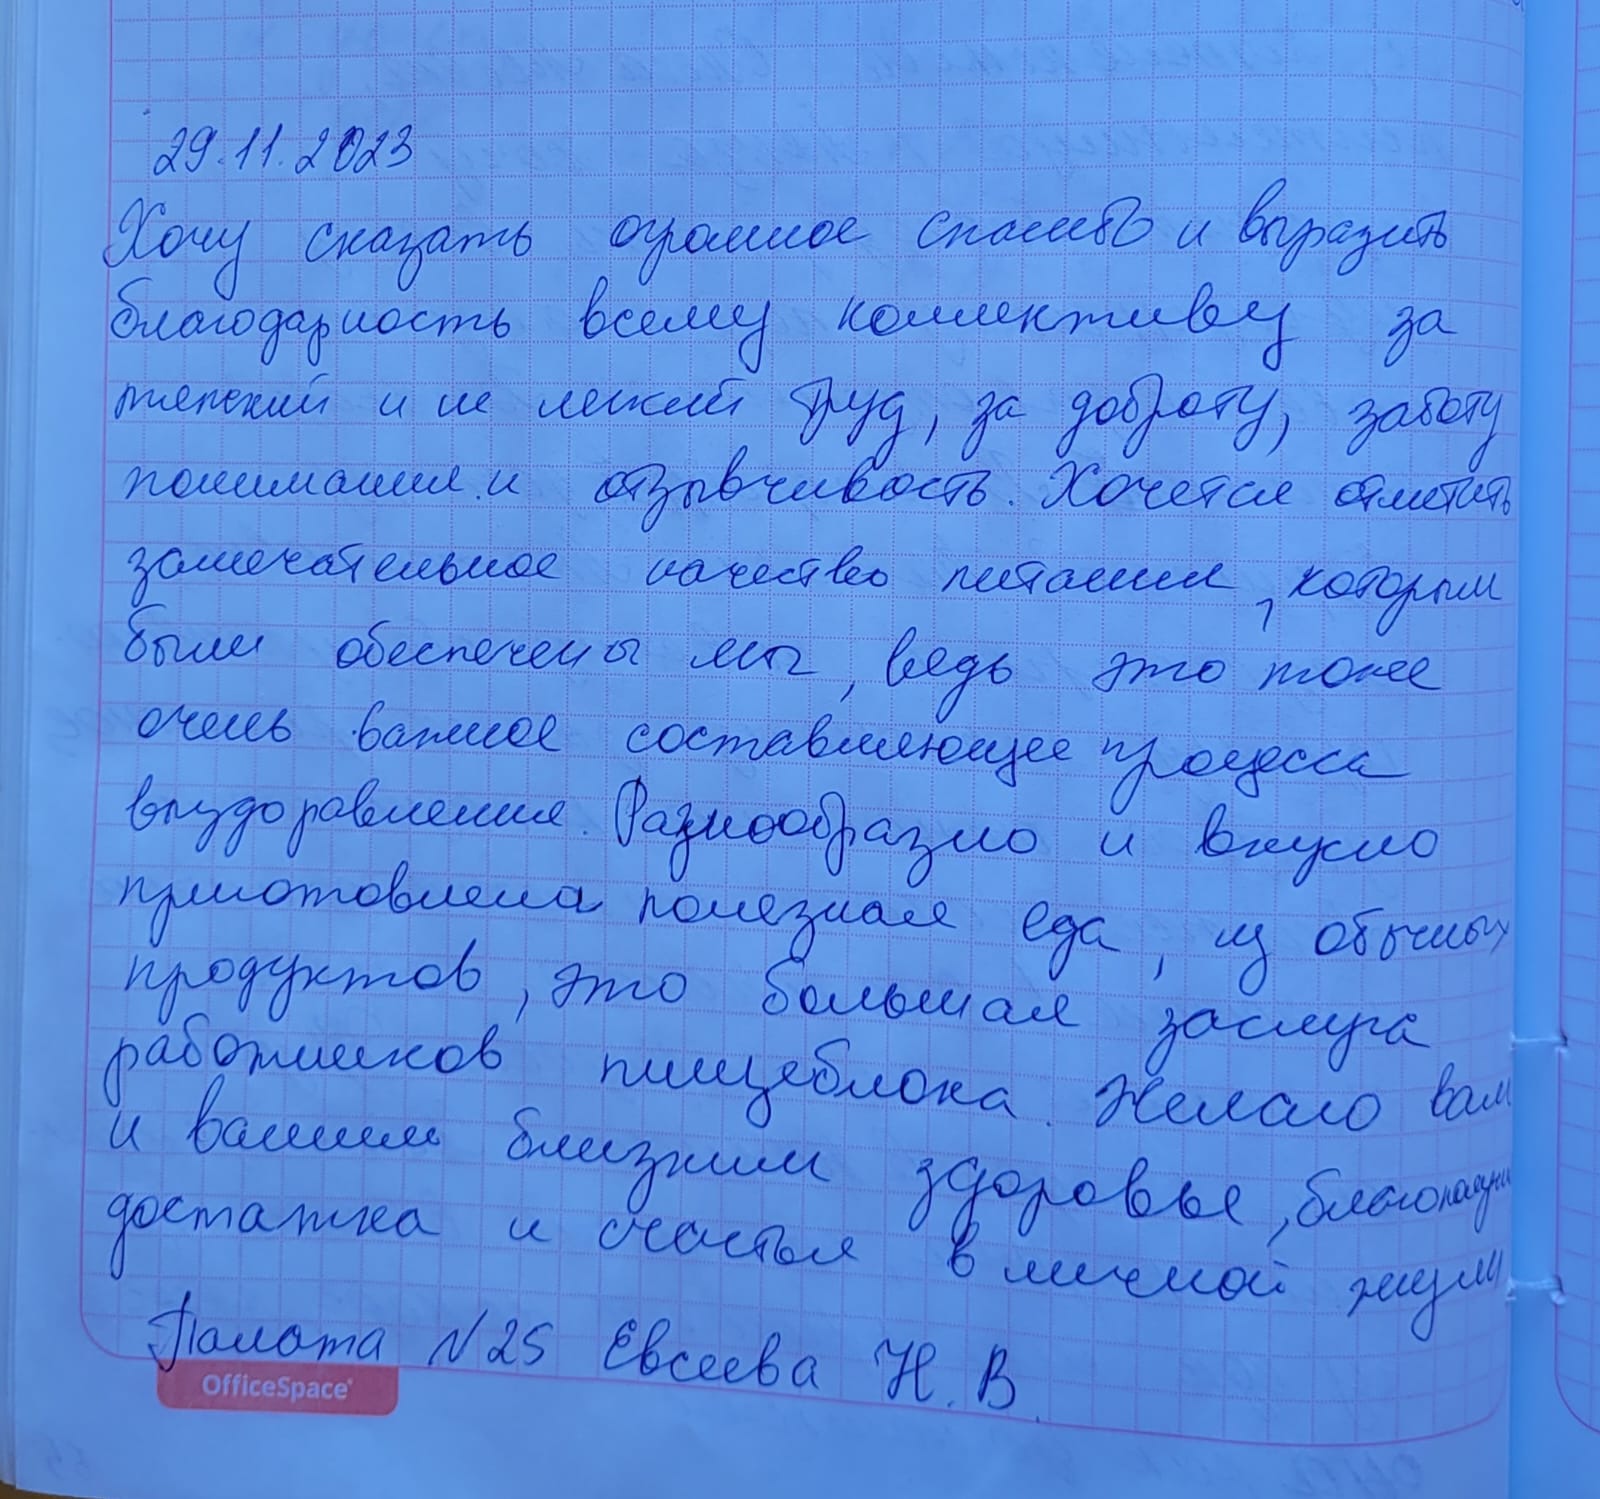 29.11.2023
Хочу сказать огромное спасибо и выразить
благодарность всему коллективу за
тяжкий и не легкий труд, за доброту, заботу
понимания и отзывчивость. Хочется отметить
замечательное качество питания, которым
были обеспечены мы, ведь это тоже
очень важное составляющее процесса
выздоравления. Разнообразно и вкусно
приготовлена полезная еда, из обычных
продуктов, это большая заслуга
работников пищеблока. Желаю вам
и вашим близким здоровье, благополучи
достатка и счастья в личной жизни
Палата N25 Евсеева Н. В.
OfficeSpace